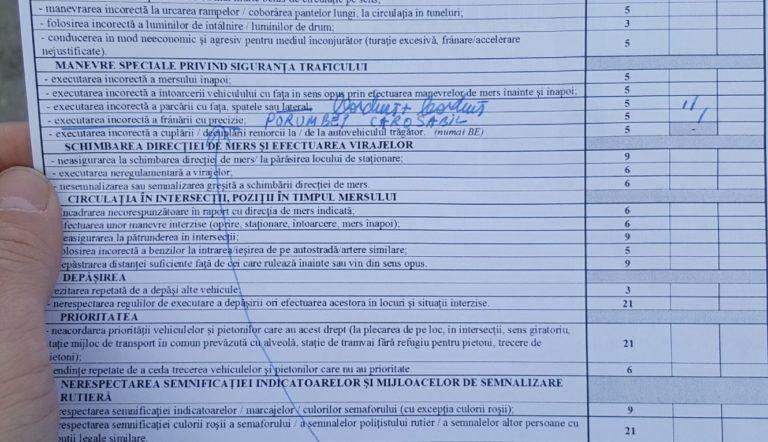 - manevrarea incorectă la urcarea rampelor / coborârea pantelor lungi, la circulația în tuneluri; 5
- folosirea incorectă a luminilor de întâlnire / luminilor de drum; 3
- conducerea in mod neeconomic și agresiv pentru mediul înconjurător (turație excesivă, frânare/accelerare
nejustificate). 5
MANEVRE SPECIALE PRIVIND SIGURANȚA TRAFICULUI
- executarea incorectă a mersului inapoi; 5
- executarea incorectă a intoarcerii vehiculului cu fața in sens opus prin efectuarea manevrelor de mers inainte și inapoi; 5
- executarea incorectă a parcării cu fața, spatele sau lateral 5
- executarea incorectă a frânării cu precizie; PORUMBEI CAROSABIL 5
- executarea incorectă a cuplării / decuplării remorcii la / de la autovehiculul trăgător. (numai BE) 5 -
SCHIMBAREA DIRECȚIEI DE MERS ȘI EFECTUAREA VIRAJELOR
- neasigurarea la schimbarea direcției de mers/ la părăsirea locului de staționare; 9
- executarea neregulamentară a virajelor; 6
- nesemnalizarea sau semnalizarea greșită a schimbării direcției de mers. 6
CIRCULAȚIA ÎN INTERSECȚII, POZIȚII ÎN TIMPUL MERSULUI
ncadrarea necorespunzătoare in raport cu direcția de mers indicată; 6
fectuarea unor manevre interzise (oprire, staționare, intoarcere, mers înapoi); 6
easigurarea la pătrunderea in intersecții; 9
olosirea incorectă a benzilor la intrarea/ieșirea de pe autostradă/artere similare; 5
epăstrarea distanței suficiente față de cei care rulează inainte sau vin din sens opus. 9
DEPĂȘIREA
ezitarea repetată de a depăși alte vehicule; 3
- nerespectarea regulilor de executare a depășirii ori efectuarea acestora in locuri și situații interzise. 21
PRIORITATEA
- neacordarea priorității vehiculelor și pietonilor care au acest drept (la plecarea de pe loc, in intersecții, sens giratoriu,
tație mijloc de transport in comun prevăzută cu alveolă, stație de tramvai fără refugiu pentru pietoni, trecere de
ietoni); 21
endințe repetate de a ceda trecerea vehiculelor și pietonilor care nu au prioritate. 6
NERESPECTAREA SEMNIFICAȚIEI INDICATOARELOR ȘI MIJLOACELOR DE SEMNALIZARE
RUTIERĂ
respectarea semnificației indicatoarelor / marcajelor / culorilor semaforului (cu excepția culorii roșii); 9
respectarea semnificației culorii roșii a semaforului / a semnalelor polițistului rutier / a semnalelor altor persoane cu
legale similare. 21